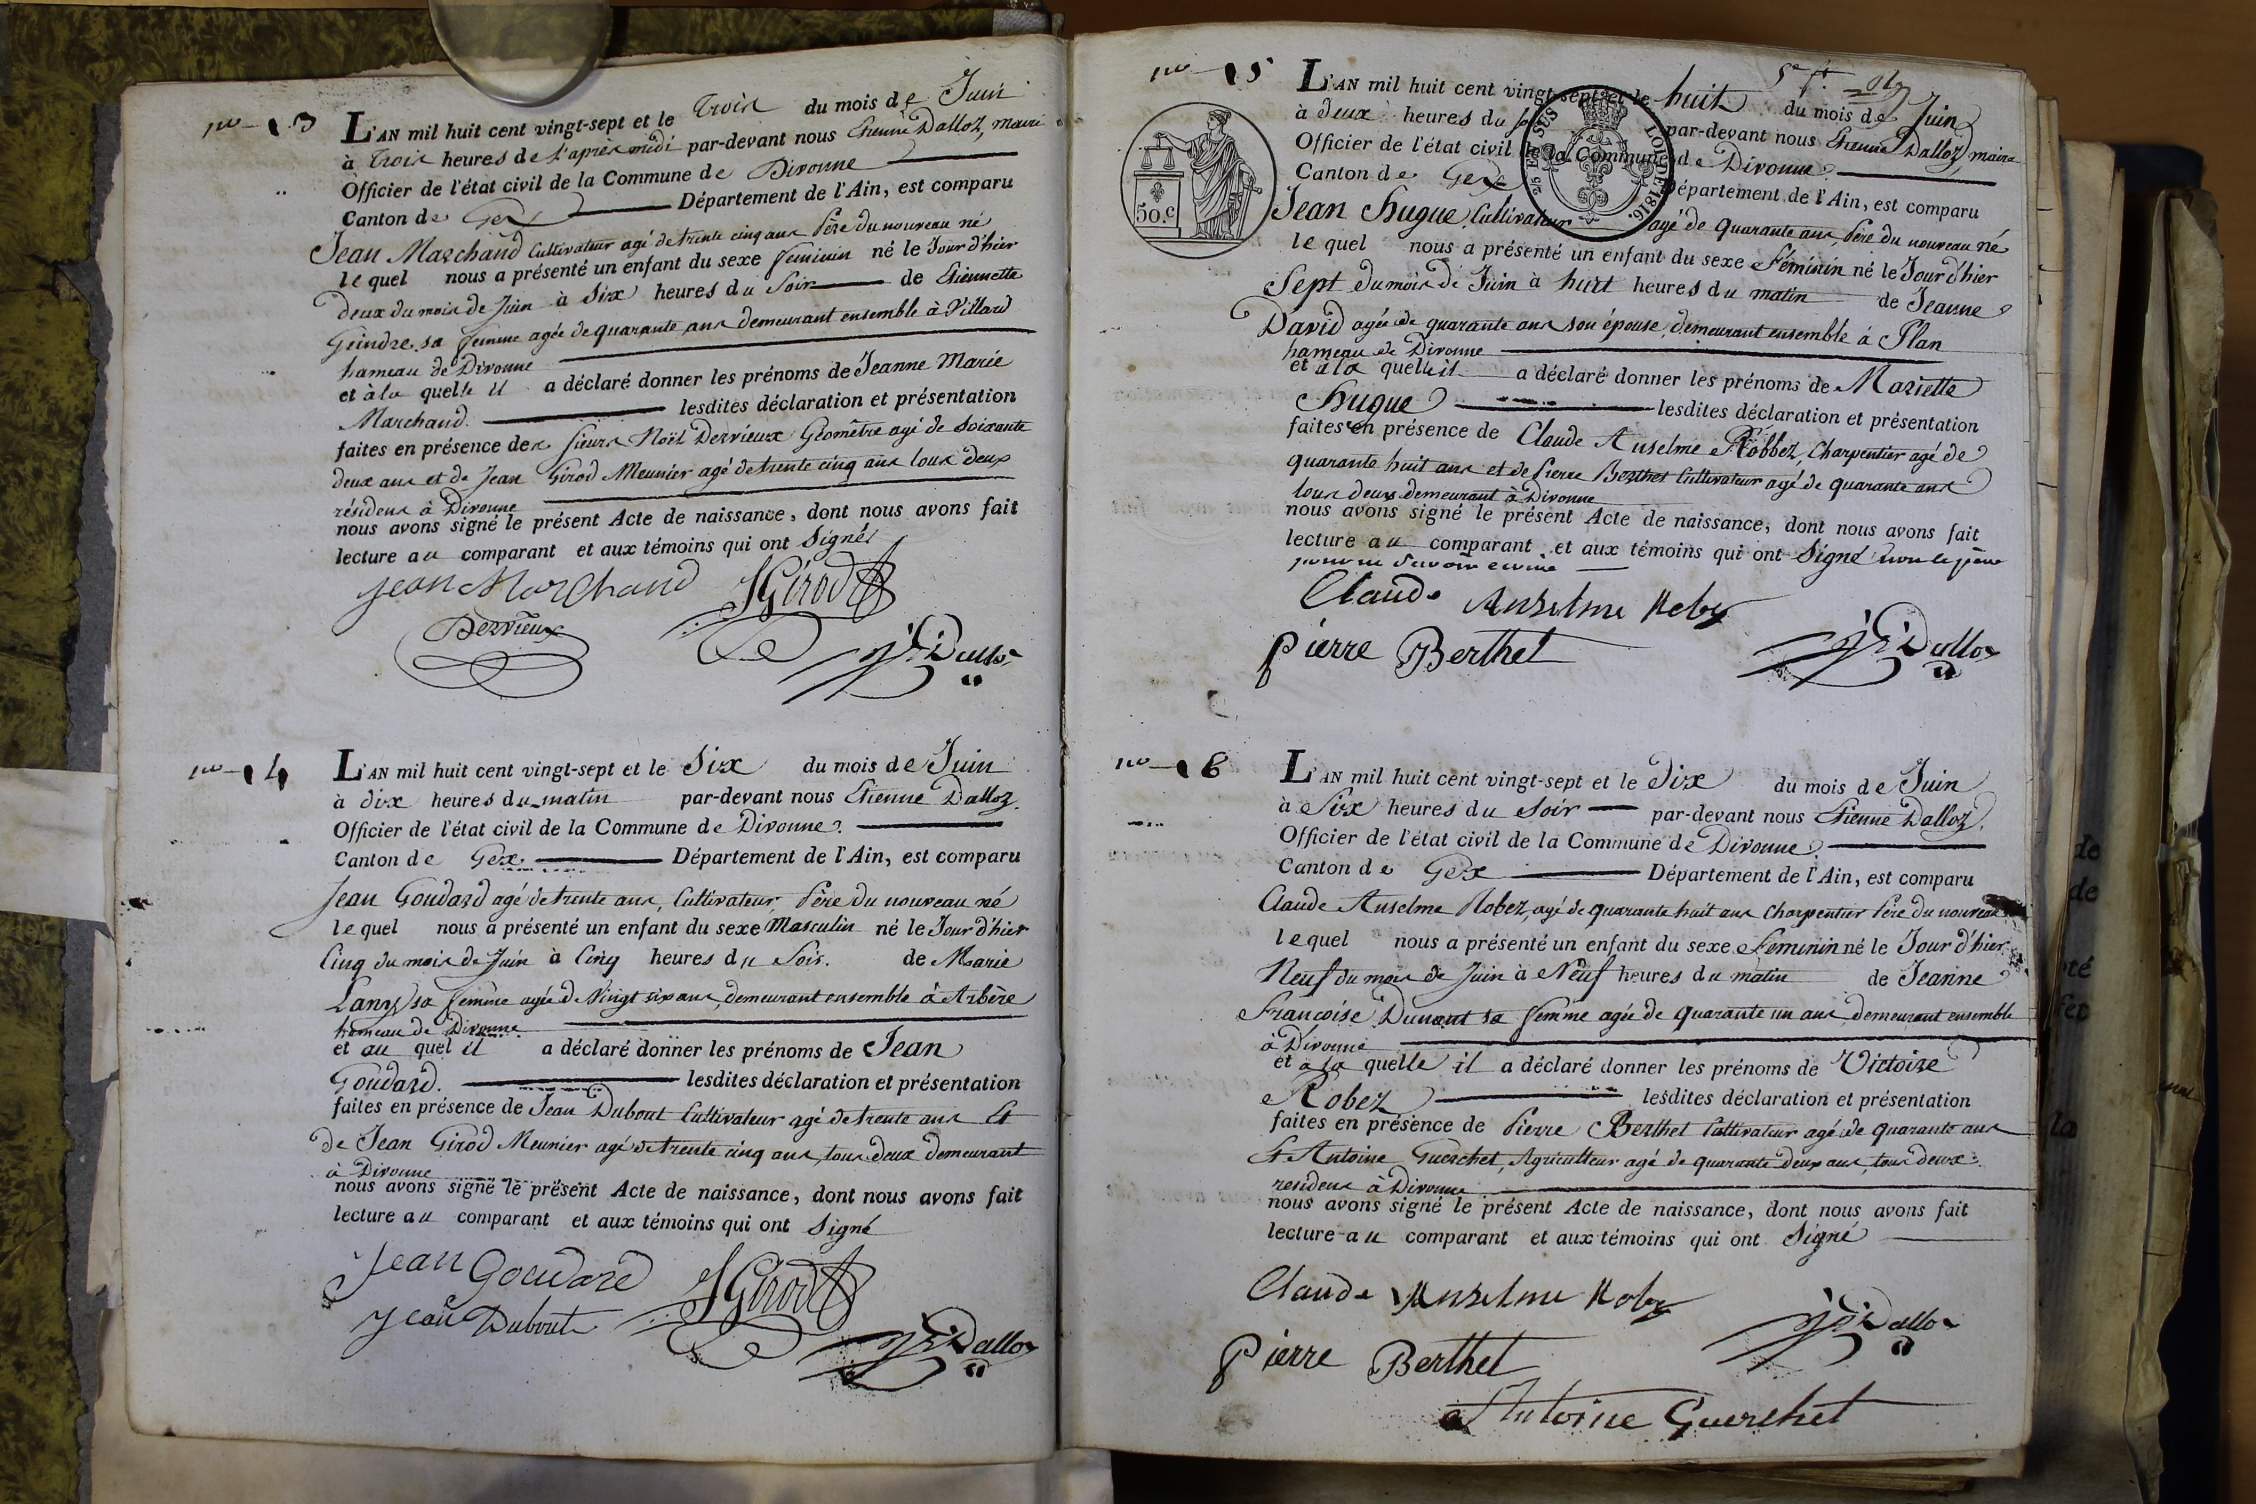 no 13
L'AN mil huit cent vingt-sept et le Trois du mois de Juin
à Trois heures de l'après midi par-devant nous Etienne Dalloz, maire
Officier de l'état civil de la Commune de Divonne
Canton de Gex Département de l'Ain, est comparu
Jean Marchand Cultivateur agé de trente cinq ans Père du nouveau né
lequel nous a présenté un enfant du sexe feminin né le Jour d'hier
deux du mois de Juin à Six heures du Soir de Etiennette
Geindre sa femme agée de quarante ans demeurant ensemble à Villard
hameau de Divonne
et à la quelle il a déclaré donner les prénoms de Jeanne Marie
Marchand. lesdites déclaration et présentation
faites en présence des sieurs Noël Dervieux Géomètre agé de Soixante
deux ans et de Jean Girod Meunier agé de trente cinq ans tous deux
résidens à Divonne
nous avons signé le présent Acte de naissance, dont nous avons fait
lecture au comparant et aux témoins qui ont Signés
Jean Marchand JGirod
Dervieux Dalloz
no 14
L'AN mil huit cent vingt-sept et le Six du mois de Juin
à dix heures du matin par-devant nous Etienne Dalloz.
Officier de l'état civil de la Commune de Divonne.
Canton de Gex. Département de l'Ain, est comparu
Jean Goudard agé de trente ans, Cultivateur, Père du nouveau né
lequel nous a présenté un enfant du sexe Masculin né le Jour d'hier
Cinq du mois de Juin à Cinq heures du Soir. de Marie
Lany sa femme agée de Vingt six ans, demeurant ensemble à Arbère
hameau de Divonne
et au quel il a déclaré donner les prénoms de Jean
Goudard. lesdites déclaration et présentation
faites en présence de Jean Dubout Cultivateur agé de trente ans Et
de Jean Girod Meunier agé de trente cinq ans, tous deux demeurant
à Divonne
nous avons signé le présent Acte de naissance, dont nous avons fait
lecture au comparant et aux témoins qui ont Signé
Jean Goudard JGirod
Jean Dubout Dalloz
no 15
L'AN mil huit cent vingt-sept et le huit du mois de Juin
à deux heures du par-devant nous Etienne Dalloz, maire
Officier de l'état civil de la Commune de Divonne.
Canton de Gex Département de l'Ain, est comparu
50.c
LOI DE 1816.
25 EN SUS
Jean Hugue Cultivateur agé de quarante ans, Père du nouveau né
lequel nous a présenté un enfant du sexe Féminin né le Jour d'hier
Sept du mois de Juin à huit heures du matin de Jeanne
David agée de quarante ans son épouse, demeurant ensemble à Plan
hameau de Divonne
et à la quelle il a déclaré donner les prénoms de Mariette
Hugue lesdites déclaration et présentation
faites en présence de Claude Anselme Robbez, Charpentier agé de
quarante huit ans et de Pierre Berthet Cultivateur agé de quarante ans
tous deux demeurant à Divonne
nous avons signé le présent Acte de naissance, dont nous avons fait
lecture au comparant et aux témoins qui ont Signé non le père
pour ne savoir écrire
Claude Anselme Robez
Pierre Berthet Dalloz
no 16
L'AN mil huit cent vingt-sept et le Dix du mois de Juin
à Six heures du Soir par-devant nous Etienne Dalloz.
Officier de l'état civil de la Commune de Divonne.
Canton de Gex Département de l'Ain, est comparu
Claude Anselme Robez, agé de quarante huit ans Charpentier Père du nouveau
lequel nous a présenté un enfant du sexe Feminin né le Jour d'hier
Neuf du mois de Juin à Neuf heures du matin de Jeanne
Francoise Dunant sa femme agée de quarante un ans, demeurant ensemble
à Divonne
et à la quelle il a déclaré donner les prénoms de Victoire
Robez lesdites déclaration et présentation
faites en présence de Pierre Berthet Cultivateur agé de quarante ans
Et Antoine Guerchet, Agriculteur agé de quarante deux ans, tous deux
residens à Divonne
nous avons signé le présent Acte de naissance, dont nous avons fait
lecture au comparant et aux témoins qui ont Signé
Claude Anselme Robez
Pierre Berthet Dalloz
Antoine Guerchet